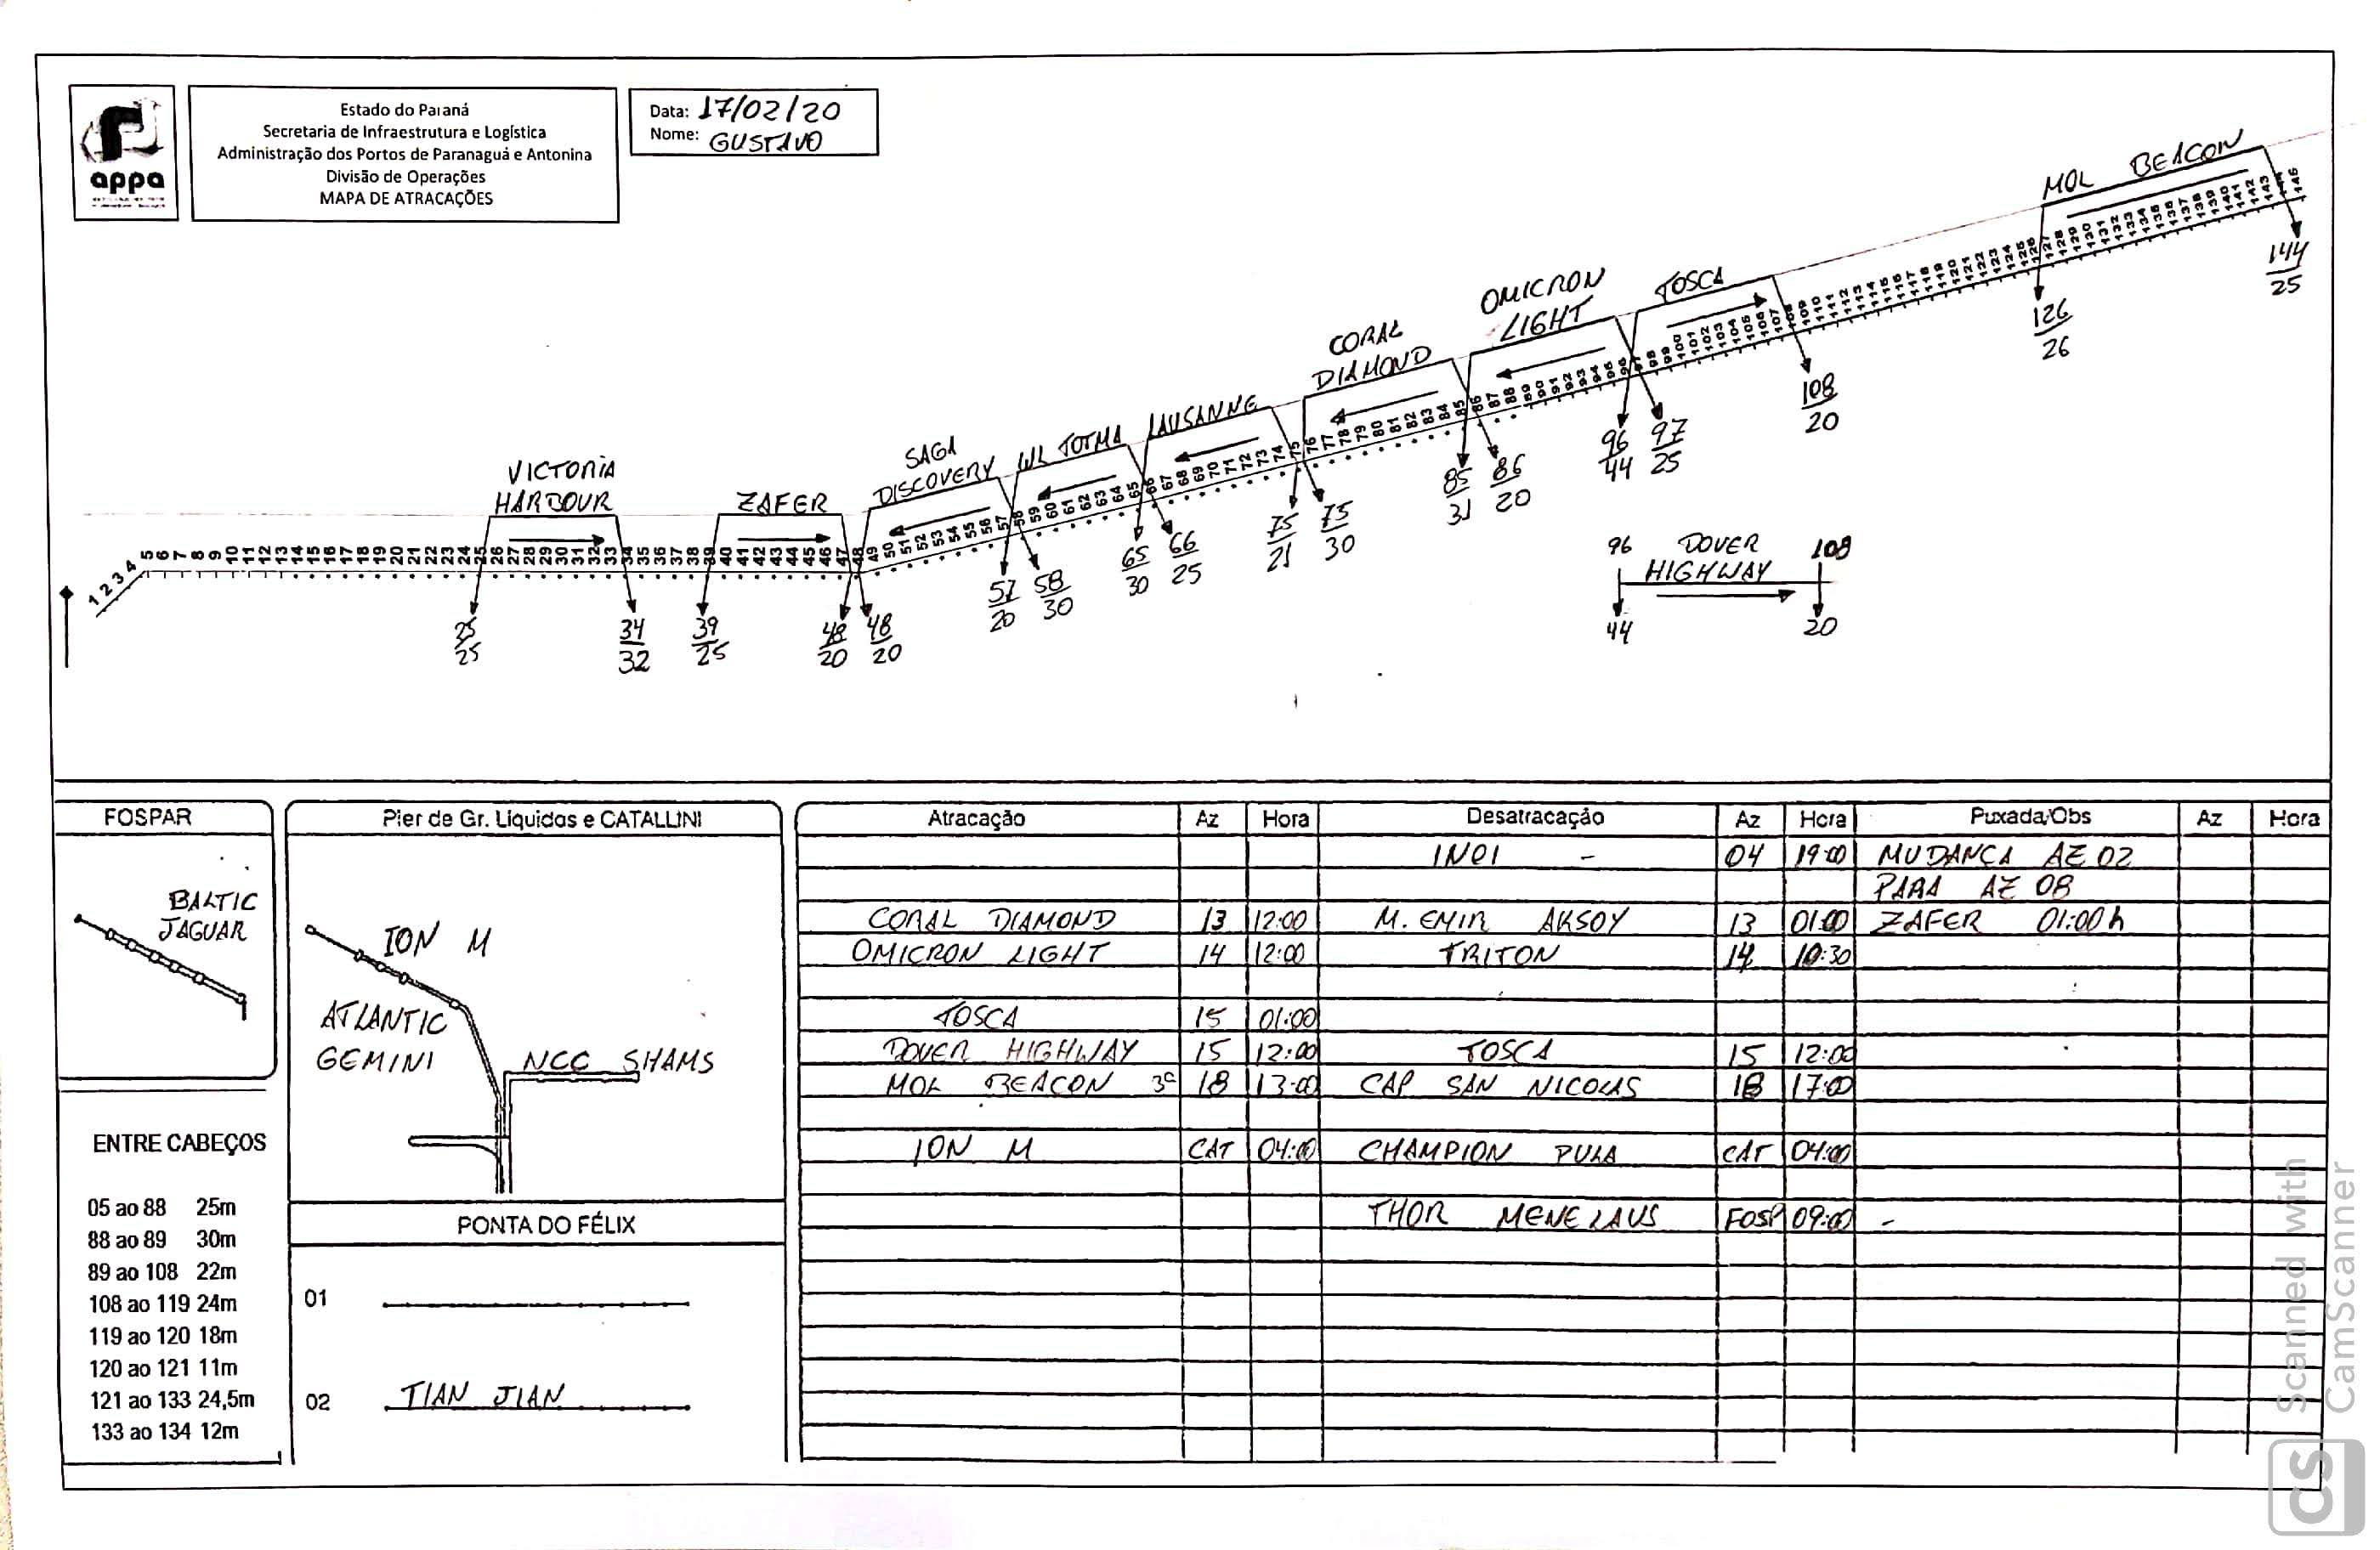 appa
Estado do Paraná
Secretaria de Infraestrutura e Logística
Administração dos Portos de Paranaguá e Antonina
Divisão de Operações
MAPA DE ATRACAÇÕES
Data: 17/02/20
Nome: GUSTAVO
MOL BEACON
144
25
126
26
TOSCA
108
20
OMICRON
LIGHT
96 97
44 25
CORAL
DIAMOND
85 86
31 20
LAUSANNE
75 75
21 30
WL TOTMA
65 66
30 25
SAGA
DISCOVERY
57 58
20 30
ZAFER
39 48 48
25 20 20
VICTORIA
HARBOUR
25 34
25 32
1 2 3 4 5 6 7 8 9 10 11 12 13 14 15 16 17 18 19 20 21 22 23 24 25 26 27 28 29 30 31 32 33 34 35 36 37 38 39 40 41 42 43 44 45 46 47 48 49 50 51 52 53 54 55 56 57 58 59 60 61 62 63 64 65 66 67 68 69 70 71 72 73 74 75 76 77 78 79 80 81 82 83 84 85 86 87 88 89 90 91 92 93 94 95 96 97 98 99 100 101 102 103 104 105 106 107 108 109 110 111 112 113 114 115 116 117 118 119 120 121 122 123 124 125 126 127 128 129 130 131 132 133 134 135 136 137 138 139 140 141 142 143 144 146
96 DOVER 108
HIGHWAY
44 20
FOSPAR
BALTIC
JAGUAR
Pier de Gr. Liquidos e CATALLINI
ION M
ATLANTIC
GEMINI
NCC SHAMS
ENTRE CABEÇOS
05 ao 88 25m
88 ao 89 30m
89 ao 108 22m
108 ao 119 24m
119 ao 120 18m
120 ao 121 11m
121 ao 133 24,5m
133 ao 134 12m
PONTA DO FÉLIX
01
02 TIAN JIAN
Atracação Az Hora Desatracação Az Hora Puxada/Obs Az Hora
INOI - 04 19:00 MUDANÇA AZ 02
PARA AZ 08
CORAL DIAMOND 13 12:00 M. EMIR AKSOY 13 01:00 ZAFER 01:00h
OMICRON LIGHT 14 12:00 TRITON 14 10:30
TOSCA 15 01:00
DOVER HIGHWAY 15 12:00 TOSCA 15 12:00
MOL BEACON 3ª 18 13:00 CAP SAN NICOLAS 18 17:00
ION M CAT 04:00 CHAMPION PULA CAT 04:00
THOR MENELAUS FOSP 09:00 -
Scanned with
CamScanner
CS